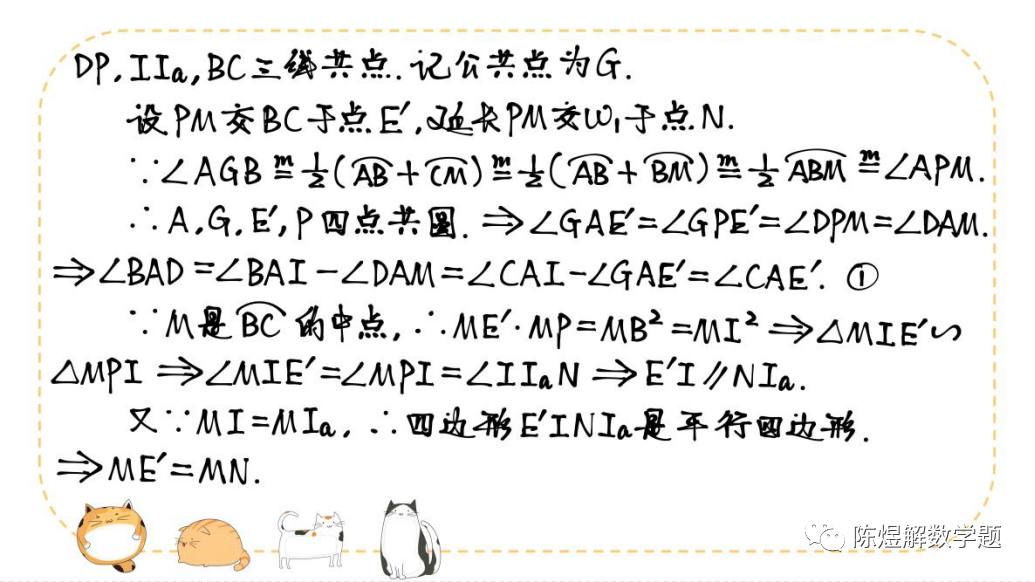 DP,IIa,BC三线共点.记公共点为G.
设PM交BC于点E′,延长PM交ω₁于点N.
∵∠AGB ≝ᵐ 1/2(AB⌒+CM⌒) =ᵐ 1/2(AB⌒+BM⌒) =ᵐ 1/2 ABM⌒ =ᵐ ∠APM.
∴A,G,E′,P四点共圆.⇒∠GAE′=∠GPE′=∠DPM=∠DAM.
⇒∠BAD=∠BAI-∠DAM=∠CAI-∠GAE′=∠CAE′. ①
∵M是BC⌒的中点,∴ME′·MP=MB²=MI²⇒△MIE′∽
△MPI⇒∠MIE′=∠MPI=∠IIaN⇒E′I∥NIa.
又∵MI=MIa,∴四边形E′INIa是平行四边形.
⇒ME′=MN.
陈煜解数学题